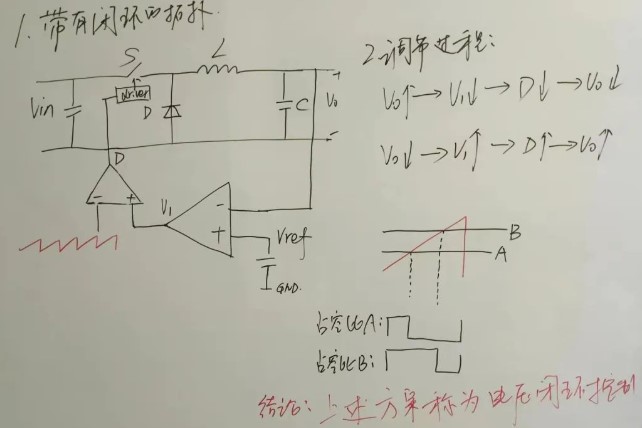 1. 带有闭环的拓扑
S
L
Vin
driver
D
C
Vo
D
V1
Vref
GND
2. 调节过程:
Vo↑→V1↓→D↓→Vo↓
Vo↓→V1↑→D↑→Vo↑
B
A
占空比A:
占空比B:
结论: 上述方案称为电压闭环控制